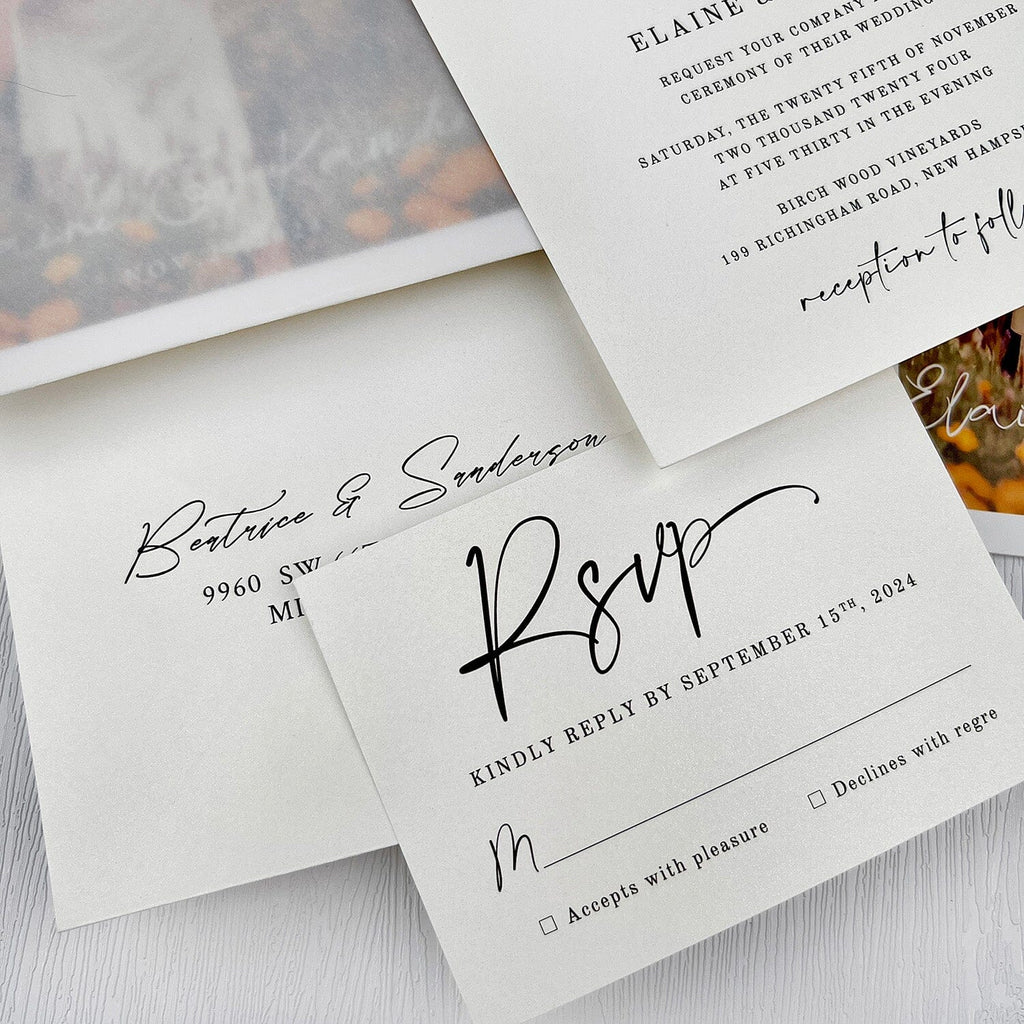 ELAINE &
REQUEST YOUR COMPANY
CEREMONY OF THEIR WEDDING
SATURDAY, THE TWENTY FIFTH OF NOVEMBER
TWO THOUSAND TWENTY FOUR
AT FIVE THIRTY IN THE EVENING
BIRCH WOOD VINEYARDS
199 RICHINGHAM ROAD, NEW HAMPS
reception to foll
Elai
Beatrice & Sanderson
9960 SW
MI
Rsvp
KINDLY REPLY BY SEPTEMBER 15TH, 2024
M
☐ Accepts with pleasure ☐ Declines with regre